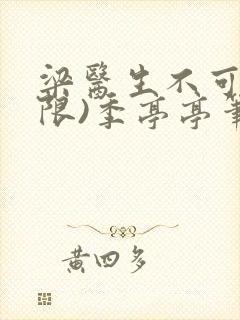 梁醫生不可
限)季亭亭
黄四多